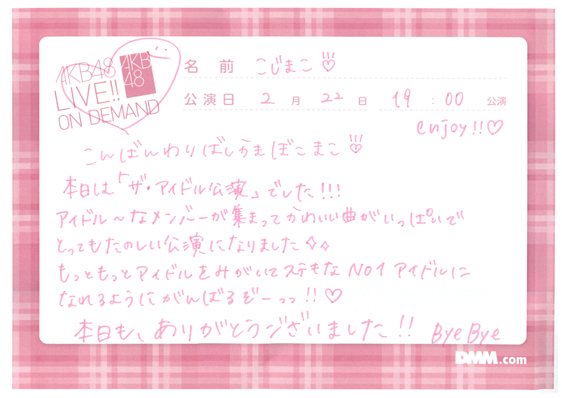 AKB48
LIVE!!
ON DEMAND
AKB
48
名前 こじまこ♡
公演日 2月22日 19:00 公演
enjoy!!♡
こんばんわりばしかまぼこまこ♡
本日は「ザ・アイドル公演」でした!!!
アイドル〜なメンバーが集まってかわいい曲がいっぱいで
とってもたのしい公演になりました✧✧
もっともっとアイドルをみがいてステキなNO1アイドルに
なれるようにがんばるぞーっっ!!♡
本日も、ありがとうございました!! Bye Bye
DMM.com